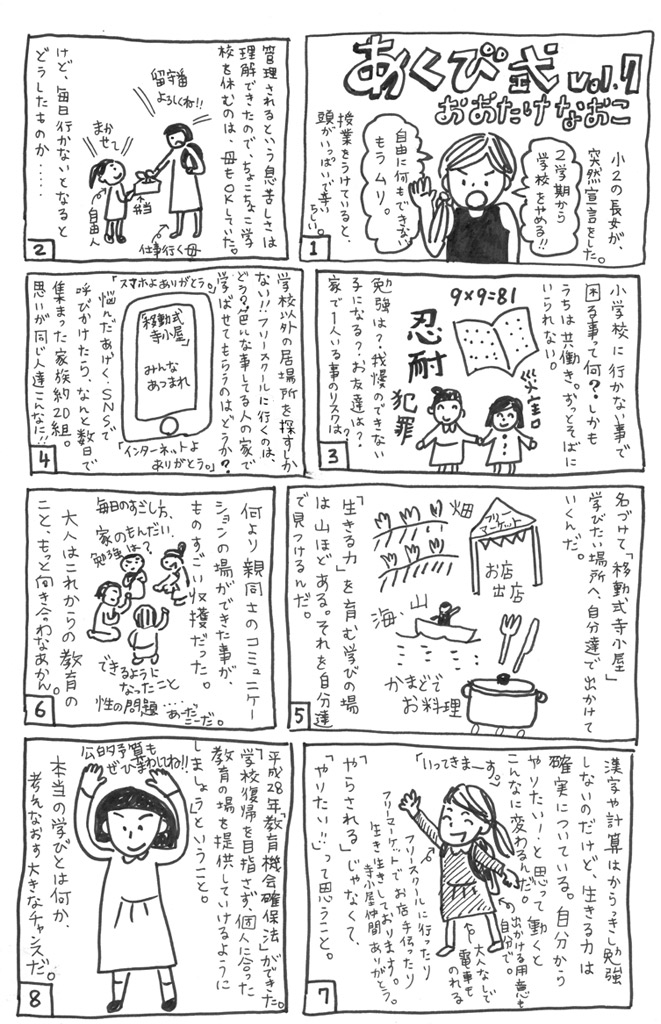 あくび式 vol.7
おおたけなおこ
小2の長女が、
突然宣言をした。
2学期から
学校をやめる!!
自由に何もできない
もうムリ。
授業をうけていると、
頭がいっぱいで辛い
らしい。
1
管理されるという息苦しさは
理解できたので、ちょこちょこ学
校を休むのは、母もOKしていた。
留守番
よろしくね!!
まかせて
弁当
自由人
仕事行く母
けど、毎日行かないとなると
どうしたものか……
2
小学校に行かない事で
困る事って何?しかも
うちは共働き。ずっとそばに
いられない。
9×9=81
忍耐
災害
犯罪
勉強は?我慢のできない
子になる?お友達は?
家で1人いる事のリスクは?
3
学校以外の居場所を探すしか
ない!!フリースクールに行くのは、
どう?色んな事してる人の家で
学ばせてもらうのはどうか?
「スマホよありがとう。」
「移動式
寺小屋」
みんな
あつまれ
「インターネットよ
ありがとう。」
悩んだあげく、SNSで
呼びかけたら、なんと数日で
集まった家族約20組。
思いが同じ人達こんなに!!
4
名づけて「移動式寺小屋」
学びたい場所へ、自分達で出かけて
いくんだ。
フリー
マーケット
お店
出店
畑
海、山
かまどで
お料理
「生きる力」を育む学びの場
は山ほどある。それを自分達
で見つけるんだ。
5
何より親同士のコミュニケー
ションの場ができた事が、
ものすごい収穫だった。
毎日のすごし方、
家のもんだい、
勉強は?
できるように
なったこと
性の問題……あーだ
こーだ。
大人はこれからの教育の
こと、もっと向き合わなあかん。
6
漢字や計算はからっきし勉強
しないのだけど、生きる力は
確実についている。自分から
やりたい!と思って働くと
こんなに変わるんだ。
「いってきまーす。」
出かける用意も
自分で。
大人なしで
電車も
のれるや
フリースクールに行ったり
フリーマーケットでお店手伝ったり
生き生きしております。
寺小屋仲間ありがとう。
「やらされる」じゃなくて、
「やりたい!!」って思うこと。
7
「平成28年「教育機会確保法」ができた。
「学校復帰を目指さず、個人に合った
教育の場を提供していけるように
しましょう」ということ。
公的予算も
ぜひ変わしね!!
本当の学びとは何か、
考えなおす大きなチャンスだ。
8